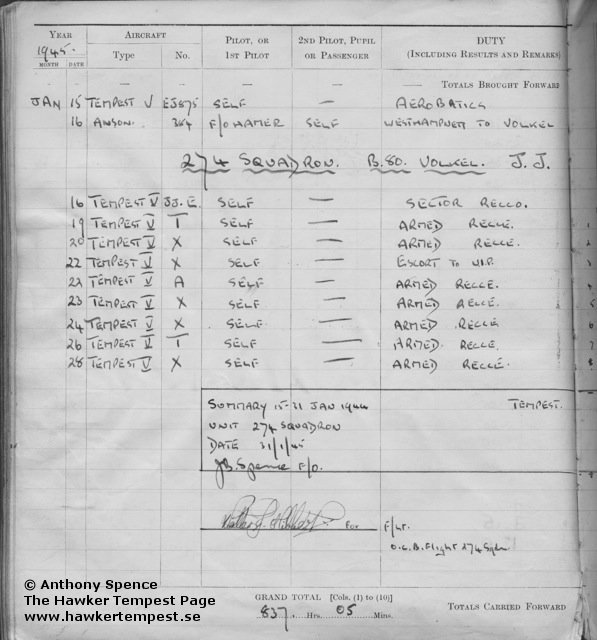 YEAR AIRCRAFT PILOT, OR 2ND PILOT, PUPIL DUTY
1945. Type No. 1ST PILOT OR PASSENGER (INCLUDING RESULTS AND REMARKS)
MONTH DATE
— — — — — TOTALS BROUGHT FORWARD
JAN 15 TEMPEST V EJ875 SELF — AEROBATICS
16 ANSON. 384 F/O HAMER SELF WESTHAMPNETT TO VOLKEL
274 SQUADRON. B.80. VOLKEL. J.J.
16 TEMPEST V JJ.E. SELF — SECTOR RECCO.
19 TEMPEST V T SELF — ARMED RECCE.
20 TEMPEST V X SELF — ARMED RECCE.
22 TEMPEST V X SELF — ESCORT TO V.I.P.
22 TEMPEST V A SELF — ARMED RECCE.
23 TEMPEST V X SELF — ARMED RECCE.
24 TEMPEST V X SELF — ARMED RECCE
26 TEMPEST V T SELF — ARMED. RECCE.
28 TEMPEST V X SELF — ARMED RECCE.
SUMMARY 15-31 JAN 1944 TEMPEST.
UNIT 274 SQUADRON
DATE 31/1/45
JB. Spence F/O.
For F/Lt.
O.C. B. Flight 274 Sqdn.
GRAND TOTAL [Cols. (1) to (10)]
837 Hrs. 05 Mins.
TOTALS CARRIED FORWARD
© Anthony Spence
The Hawker Tempest Page
www.hawkertempest.se